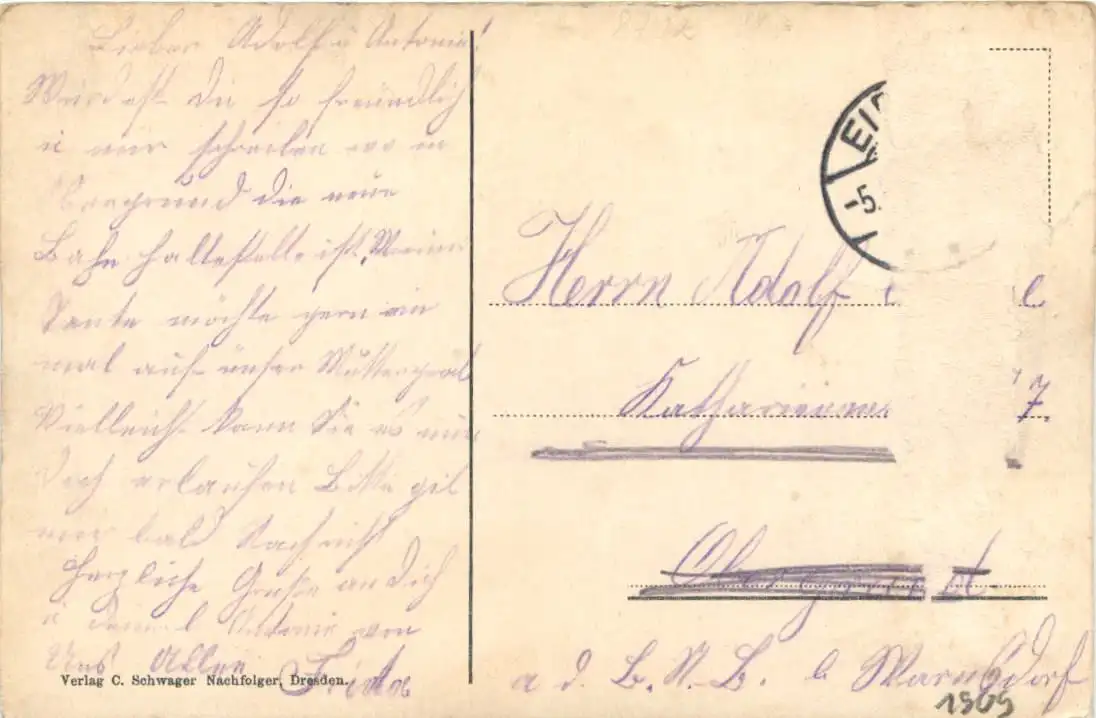 Lieber Adolf u Antonie!
Würdest Du so freundlich
u mir schreiben wo in
die neue
Bahn haltestelle ist. Meine
Tante möchte gern ein
mal auf unser Muttergrab
Vielleicht kann Sie es nun
doch erlaufen Bitte gib
mir bald Nachricht
Herzliche Grüße an Dich
u Antonie von
Uns Allen Frida
Verlag C. Schwager Nachfolger, Dresden.
EI
-5.
Herrn Adolf e
7
a d. B. N. B. b Warnsdorf
1909